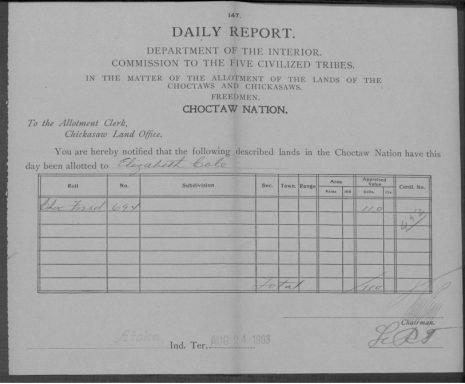 147.
DAILY REPORT.
DEPARTMENT OF THE INTERIOR.
COMMISSION TO THE FIVE CIVILIZED TRIBES.
IN THE MATTER OF THE ALLOTMENT OF THE LANDS OF THE
CHOCTAWS AND CHICKASAWS.
FREEDMEN.
CHOCTAW NATION.
To the Allotment Clerk,
Chickasaw Land Office.
You are hereby notified that the following described lands in the Choctaw Nation have this
day been allotted to Elizabeth Cole
Roll No. Subdivision Sec. Town. Range Area Appraised Value Certf. No.
Acres 100 Dolls. Cts.
694 110
Total 110
Chairman.
Atoka Ind. Ter. AUG 24 1903